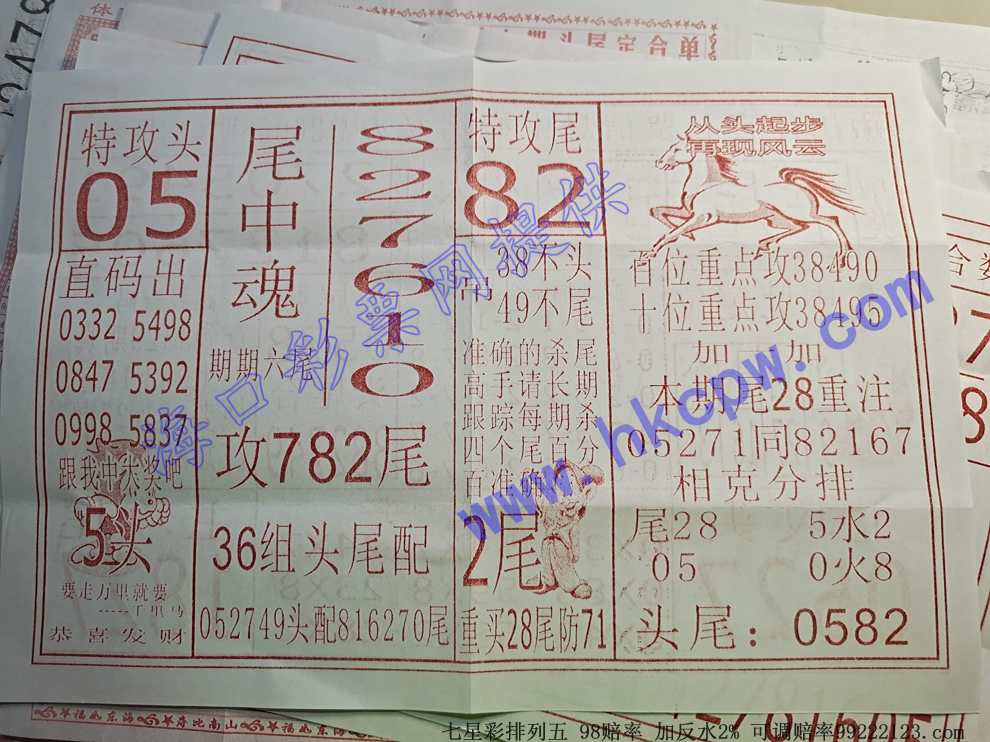 期头尾定合单
特攻头
05
直码出
0332 5498
0847 5392
0998 5837
跟我中大奖吧
5头
要走万里就要
-----千里马
恭喜发财
尾中魂
827610
期期六尾
攻782尾
36组头尾配
052749头配816270尾
特攻尾
82
38不头
中
49不尾
准确的杀尾
高手请长期
跟踪每期杀
四个尾百分
百准确
2尾
重买28尾防71
从头起步
再现风云
百位重点攻38490
十位重点攻38495
加 加
本期尾28重注
05271同82167
相克分排
尾28 5水2
05 0火8
头尾：0582
海口彩票网提供
www.hkcpw.com
福如东海
寿比南山
福如东海
七星彩排列五 98赔率 加反水2% 可调赔率99222123.com